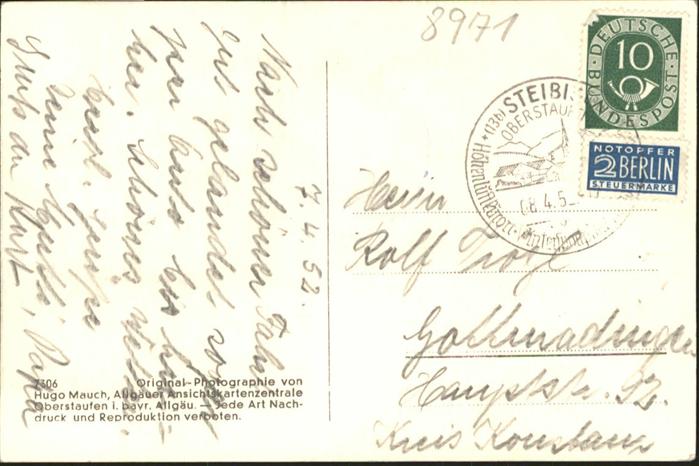 8971
DEUTSCHE
BUNDESPOST
10
NOTOPFER
2 BERLIN
STEUERMARKE
(13b) STEIBIS
OBERSTAUFEN
Höhenluftkurort
08.4.5
7.4.52.
Nach schöner Fahrt
gut gelandet
per Auto bis hier
her. Schönes
Herzl. Grüße
Gruß an Kurt, Papa
Herrn
Rolf
Gottmadingen
Hauptstr. 52
Kreis Konstanz
7306 Original-Photographie von
Hugo Mauch, Allgäuer Ansichtskartenzentrale
Oberstaufen i. bayr. Allgäu. — Jede Art Nach-
druck und Reproduktion verboten.